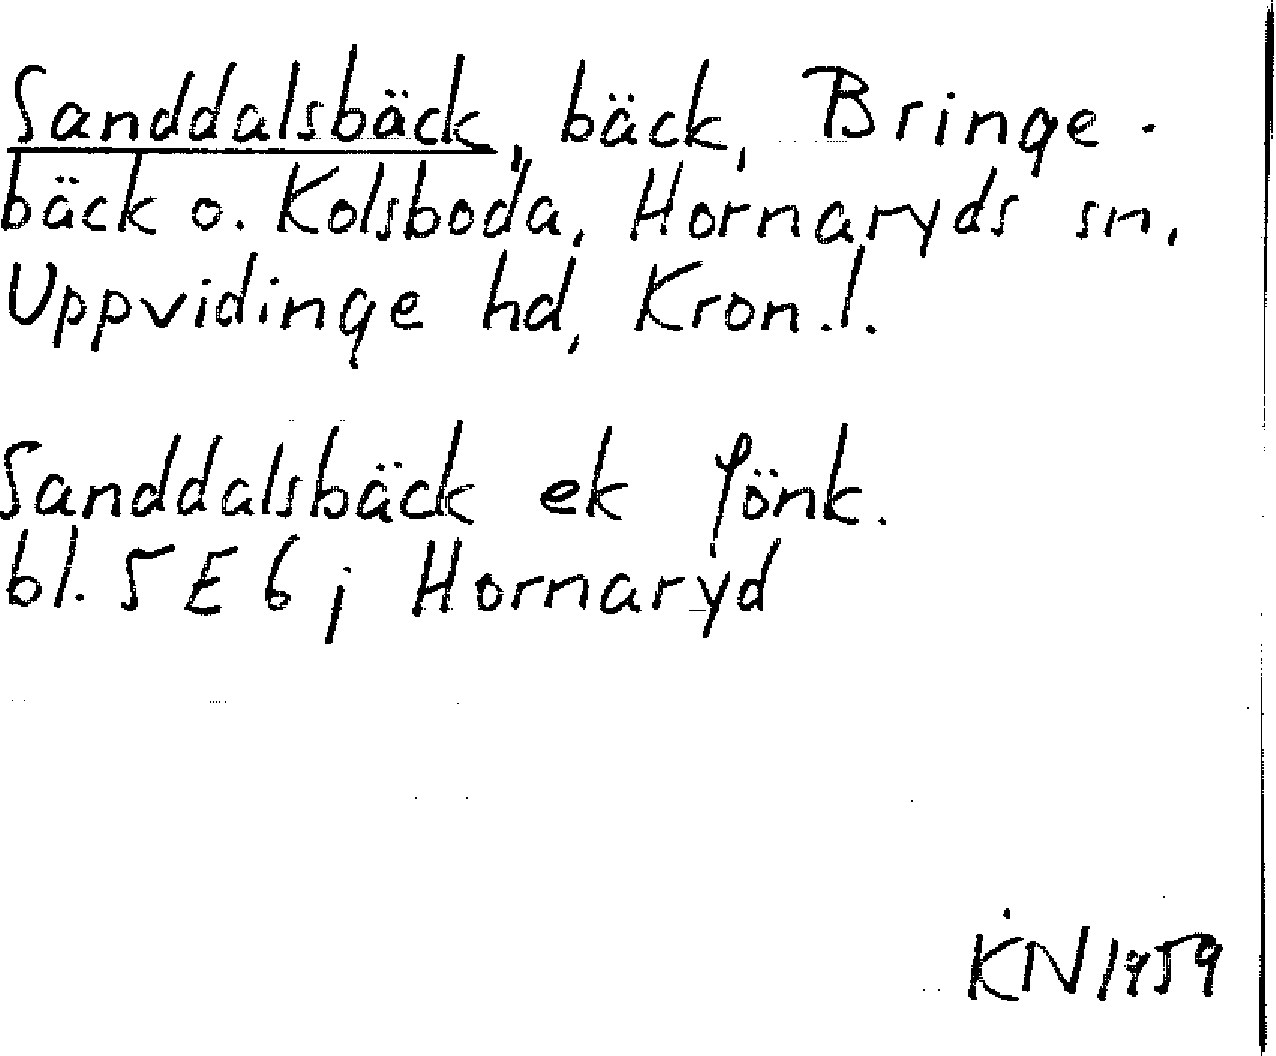 Sanddalsbäck, bäck, Bringe-
bäck o. Kolsboda, Hornaryds sn,
Uppvidinge hd, Kron.l.
Sanddalsbäck ek Jönk.
bl. 5 E 6; Hornaryd
KN 1959